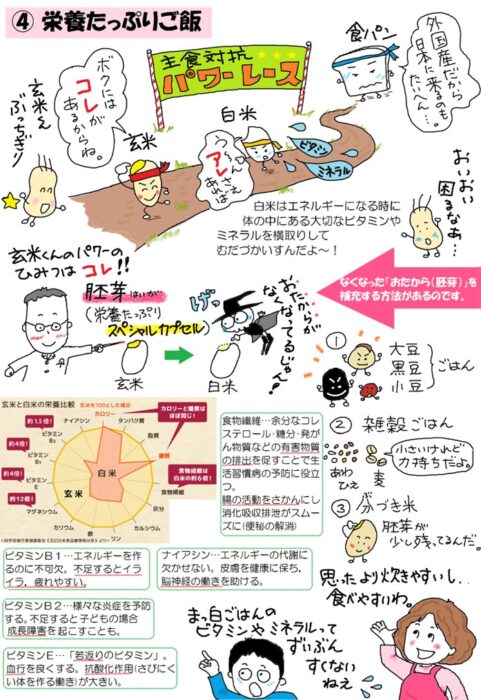 ④ 栄養たっぷりご飯
玄米くん
ぶっちぎり
ボクには
コレが
あるからね。
主食対抗
パワーレース
食パン
外国産だから
日本に来るのも
たいへん…
玄米
白米
うーん
アレさえ
あれば
ビタミン
ミネラル
おいおい
困るなあ…
白米はエネルギーになる時に
体の中にある大切なビタミンや
ミネラルを横取りして
むだづかいすんだよ～！
玄米くんのパワーの
ひみつはコレ!!
胚芽 はいが
(栄養たっぷり
スペシャルカプセル)
玄米
白米
げっ
おたからが
なくなってるじゃん!
なくなった「おたから(胚芽)」を
補充する方法があるのです。
①
大豆
黒豆
小豆
ごはん
② 雑穀ごはん
あわ
ひえ
麦
小さいけれど
力持ちだよ。
③ 分づき米
胚芽が
少し残ってるんだ。
玄米と白米の栄養比較
玄米を100とした場合
カロリー
タンパク質
脂質
糖質
食物繊維
灰分
カルシウム
リン
鉄
カリウム
マグネシウム
ビタミンE
ビタミンB2
ビタミンB1
ナイアシン
約1.5倍!
約4倍!
約4倍!
約12倍!
カロリーと糖質は
ほぼ同じ!
食物繊維は
白米の約6倍!
白米
玄米
食物繊維…余分なコレ
ステロール・糖分・発が
ん物質などの有害物質
の排出を促すことで生
活習慣病の予防に役立
つ。
腸の活動をさかんにし
消化吸収排泄がスムー
ズに(便秘の解消)
ビタミンB1…エネルギーを作
るのに不可欠。不足するとイラ
イラ、疲れやすい。
ナイアシン…エネルギーの代謝に
欠かせない。皮膚を健康に保ち、
脳神経の働きを助ける。
ビタミンB2…様々な炎症を予防
する。不足すると子どもの場合
成長障害を起こすことも。
ビタミンE…「若返りのビタミン」。
血行を良くする。抗酸化作用(さびにく
い体を作る働き)が大きい。
思ったより炊きやすいし、
食べやすいわ。
まっ白ごはんの
ビタミンやミネラルって
ずいぶん
すくない
ねえ